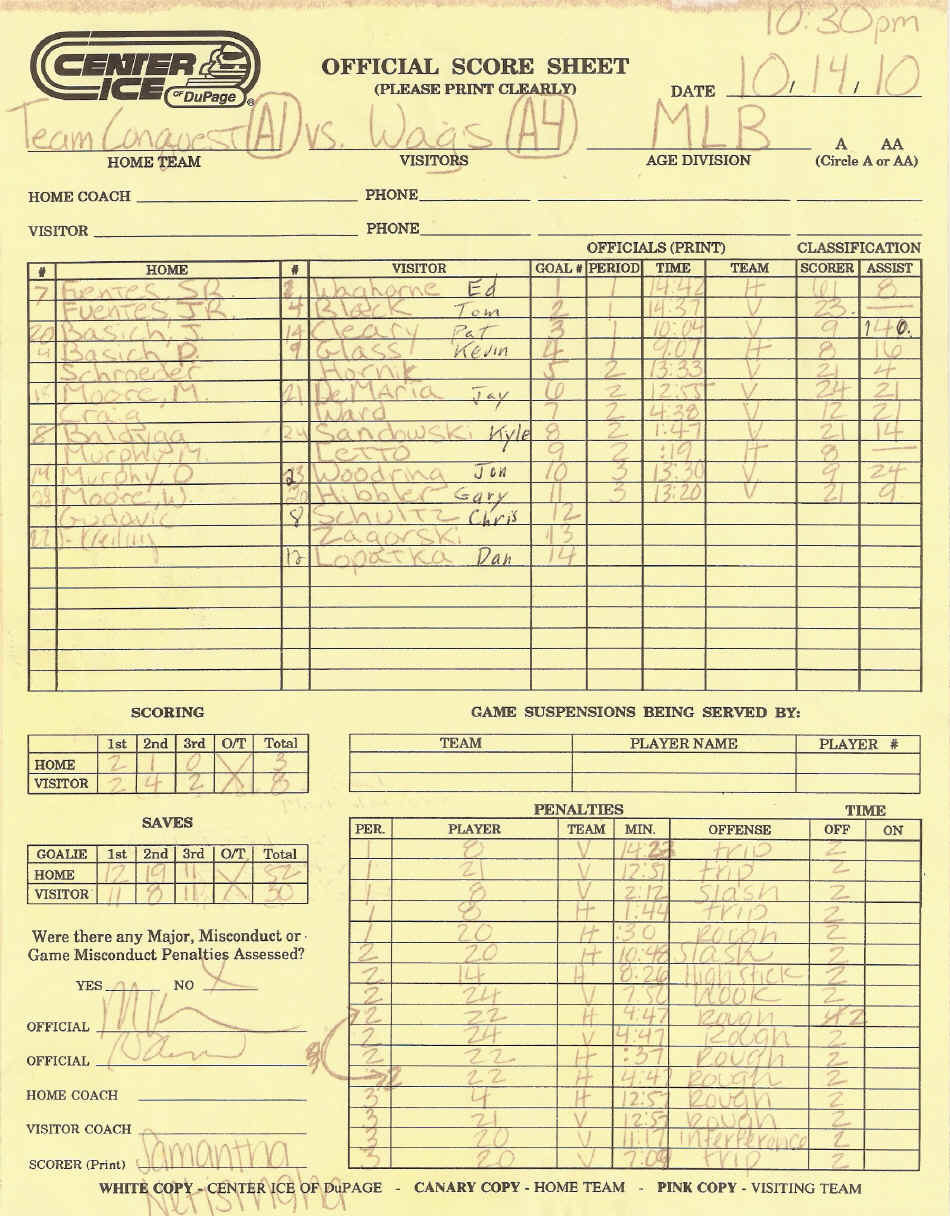 10:30pm
CENTER ICE OF DuPage ®
OFFICIAL SCORE SHEET
(PLEASE PRINT CLEARLY)
DATE 10, 14, 10
Team Conquest (A1) vs. Wags (A4) MLB
HOME TEAM VISITORS AGE DIVISION A AA (Circle A or AA)
HOME COACH PHONE
VISITOR PHONE
OFFICIALS (PRINT) CLASSIFICATION
# HOME # VISITOR GOAL # PERIOD TIME TEAM SCORER ASSIST
7 Fuentes, SR. Waghorne Ed 1 1 14:42 H 61 8
Fuentes, JR. 4 Black Tom 2 1 14:37 V 23 —
20 Basich, J. 14 Cleary Pat 3 1 10:04 V 9 14
4 Basich D. 9 Glass Kevin 4 1 9:07 H 8 16
Schroeder Hornik 5 2 13:33 V 21 4
Moore, M. 21 DeMaria Jay 6 2 12:55 V 24 21
Craig Ward 7 2 4:38 V 12 21
8 Baldyga 24 Sandowski Kyle 8 2 1:47 V 21 14
Murphy, M. Letto 9 2 :19 H 8 —
14 Murphy, O 23 Woodring Jon 10 3 13:30 V 9 24
28 Moore, W. 20 Hibbler Gary 11 3 13:20 V 21 9
Gudavic 8 Schultz Chris 12
22 Zagorski 13
12 Lopatka Dan 14
SCORING
1st 2nd 3rd O/T Total
HOME 2 1 0 X 3
VISITOR 2 4 2 X 8
GAME SUSPENSIONS BEING SERVED BY:
TEAM PLAYER NAME PLAYER #
SAVES
GOALIE 1st 2nd 3rd O/T Total
HOME 12 19 11 52
VISITOR 11 8 11 X 30
Were there any Major, Misconduct or
Game Misconduct Penalties Assessed?
YES NO X
OFFICIAL
OFFICIAL
HOME COACH
VISITOR COACH
SCORER (Print) Samantha
PENALTIES TIME
PER. PLAYER TEAM MIN. OFFENSE OFF ON
1 8 V 14:23 trip 2
1 21 V 12:51 trip 2
1 8 V 2:12 Slash 2
1 8 H 1:44 trip 2
1 20 H :30 Rough 2
2 20 H 10:48 Slash 2
2 14 H 8:26 High stick 2
2 24 V 7:50 Hook 2
2 22 H 4:47 Rough 2
2 24 V 4:47 Rough 2
2 22 H :37 Rough 2
2 22 H 4:47 Rough 2
3 4 H 12:57 Rough 2
3 21 V 12:57 Rough 2
3 20 V 11:17 interference 2
3 20 V 7:09 trip 2
WHITE COPY - CENTER ICE OF DuPAGE - CANARY COPY - HOME TEAM - PINK COPY - VISITING TEAM